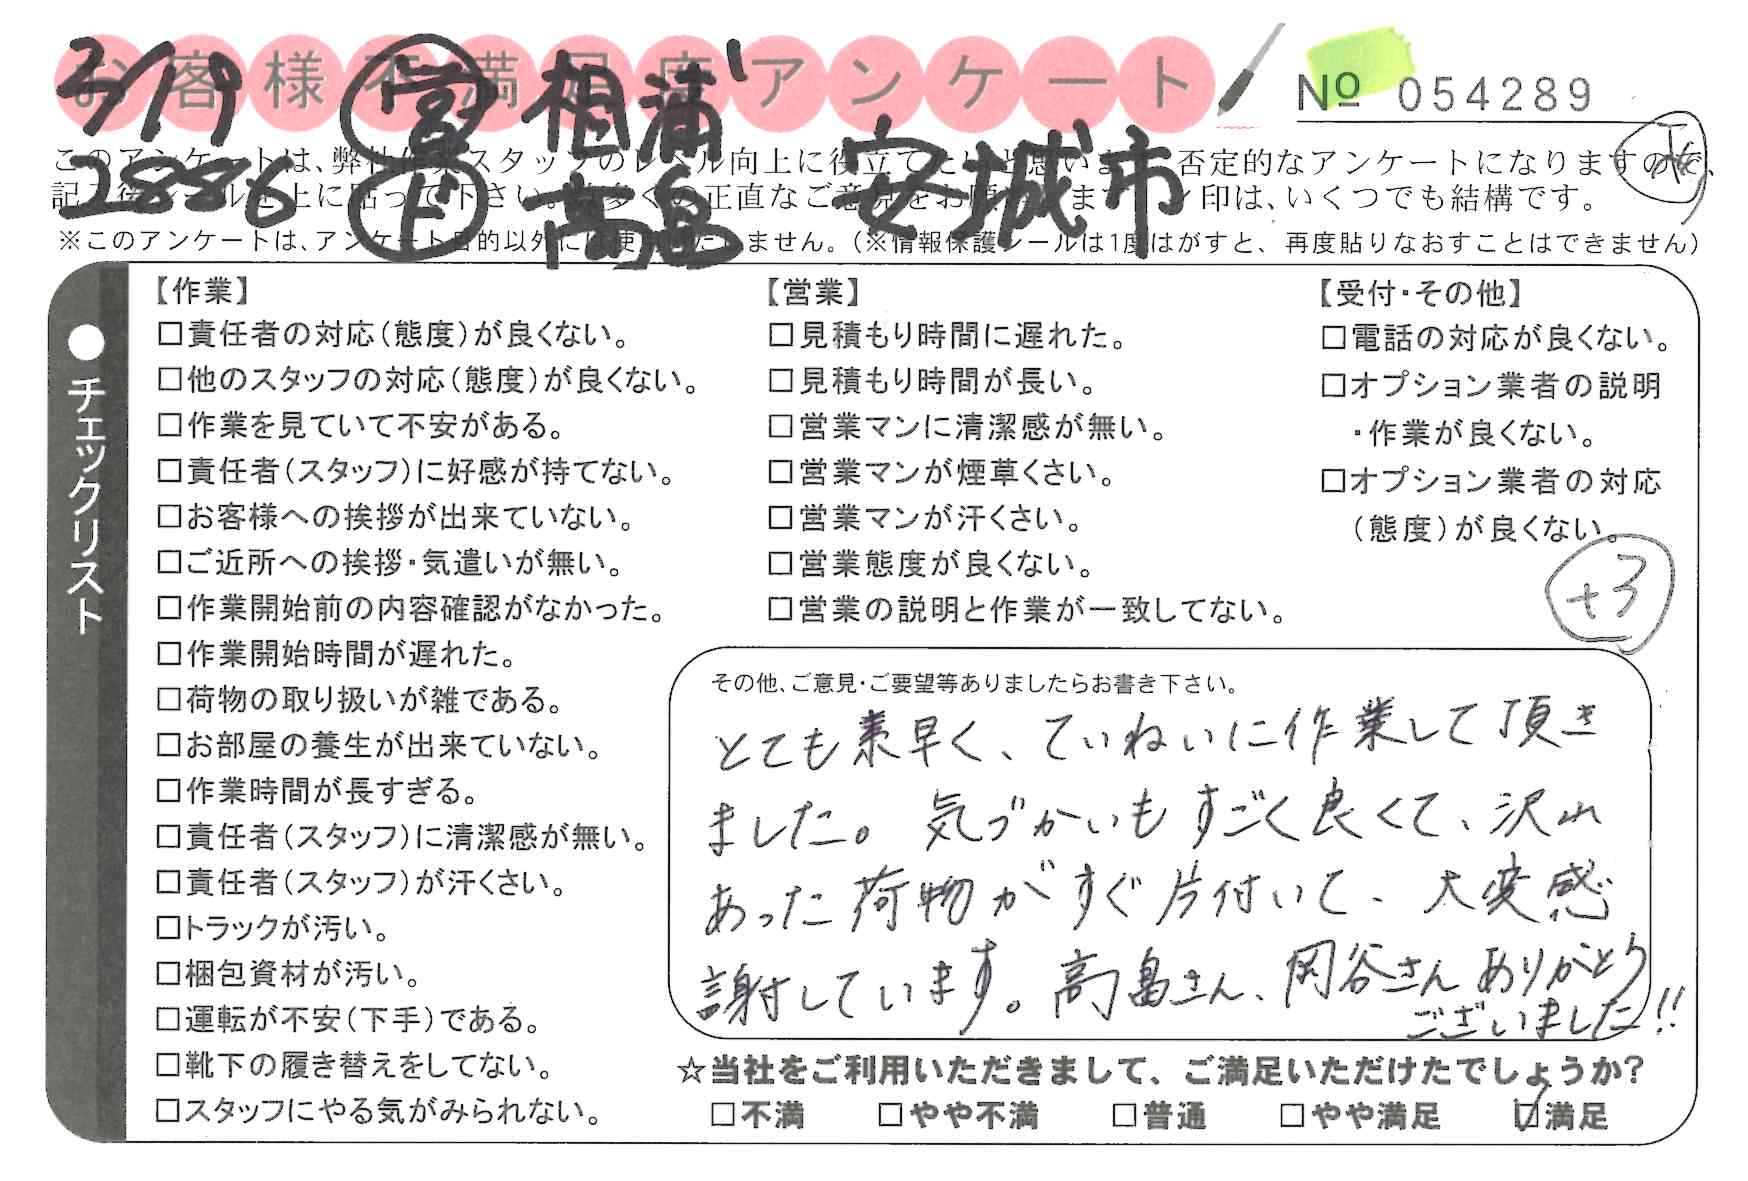 お客様不満足度アンケート
№ 054289
3/19 営 相浦
2886 高畠 安城市
このアンケートは、弊社作業スタッフのレベル向上に役立てたいと思います。否定的なアンケートになりますので、
記入後シールを上に貼って下さい。数多くの正直なご意見をお願いします。レ印は、いくつでも結構です。
※このアンケートは、アンケート目的以外には使用いたしません。（※情報保護シールは1度はがすと、再度貼りなおすことはできません）
●チェックリスト
【作業】
□責任者の対応（態度）が良くない。
□他のスタッフの対応（態度）が良くない。
□作業を見ていて不安がある。
□責任者（スタッフ）に好感が持てない。
□お客様への挨拶が出来ていない。
□ご近所への挨拶・気遣いが無い。
□作業開始前の内容確認がなかった。
□作業開始時間が遅れた。
□荷物の取り扱いが雑である。
□お部屋の養生が出来ていない。
□作業時間が長すぎる。
□責任者（スタッフ）に清潔感が無い。
□責任者（スタッフ）が汗くさい。
□トラックが汚い。
□梱包資材が汚い。
□運転が不安（下手）である。
□靴下の履き替えをしてない。
□スタッフにやる気がみられない。
【営業】
□見積もり時間に遅れた。
□見積もり時間が長い。
□営業マンに清潔感が無い。
□営業マンが煙草くさい。
□営業マンが汗くさい。
□営業態度が良くない。
□営業の説明と作業が一致してない。
【受付・その他】
□電話の対応が良くない。
□オプション業者の説明
・作業が良くない。
□オプション業者の対応
（態度）が良くない。
+3
その他、ご意見・ご要望等ありましたらお書き下さい。
とても素早く、ていねいに作業して頂き
ました。気づかいもすごく良くて、沢山
あった荷物がすぐ片付いて、大変感
謝しています。高畠さん、岡谷さんありがとう
ございました!!
☆当社をご利用いただきまして、ご満足いただけたでしょうか？
□不満 □やや不満 □普通 □やや満足 ☑満足